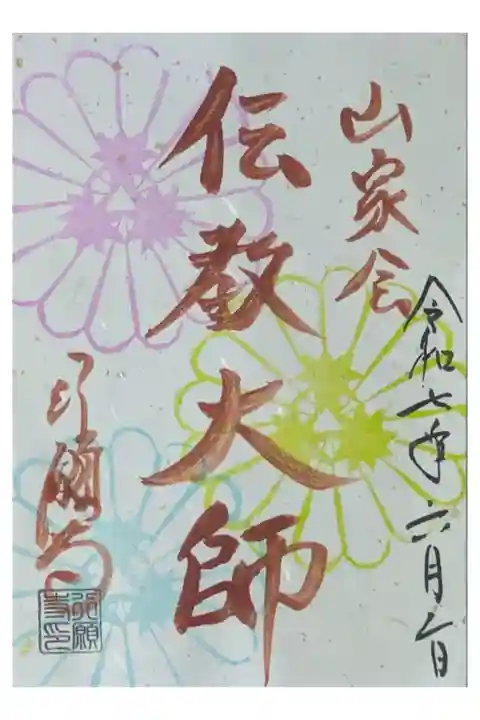 令和七年六月六日
山家会
伝教大師
行願寺
行願寺印